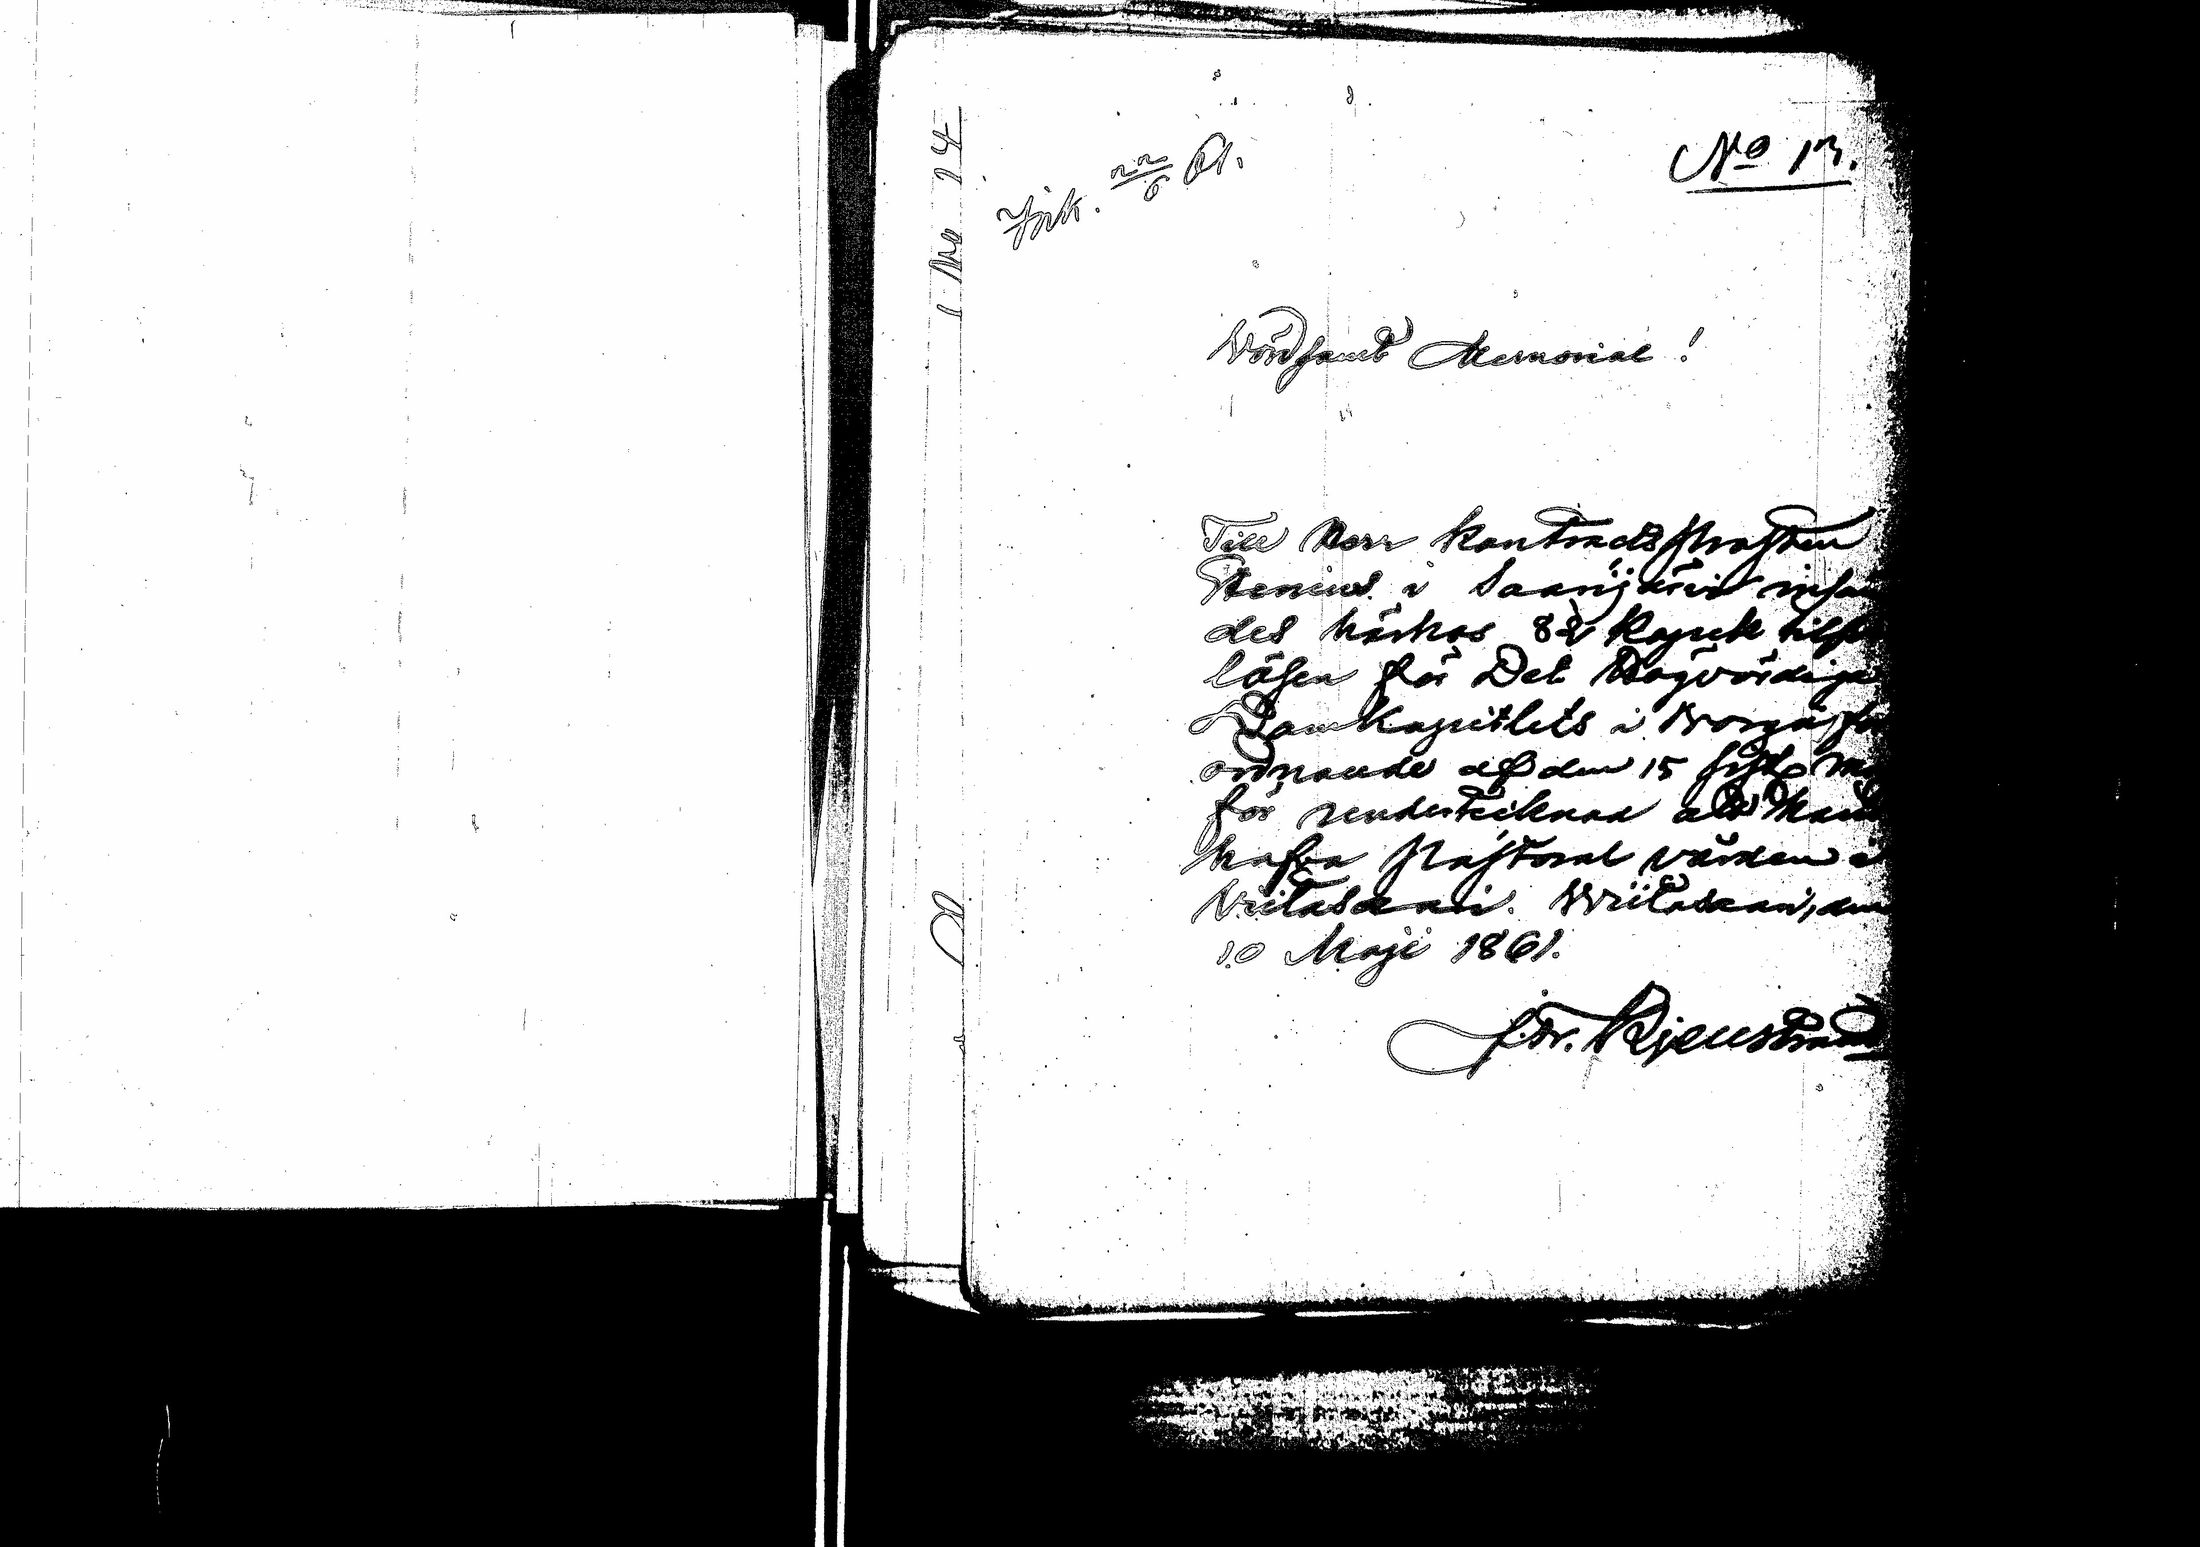 No 13.
Ink. 22/6 61.
Wördsamt Memorial!
Till Herr Kontracts Prosten
Stenius i Saarijärvi insän
des härhos 82 Kopek silf
lösen för Det Högvördiga
DomKapitlets i Borgå för
ordnande af den 15 sistl. M
för undertecknad att hand
hafva Pastoral vården i
Viitasaari. Wiitasaari, den
10 Maji 1861.